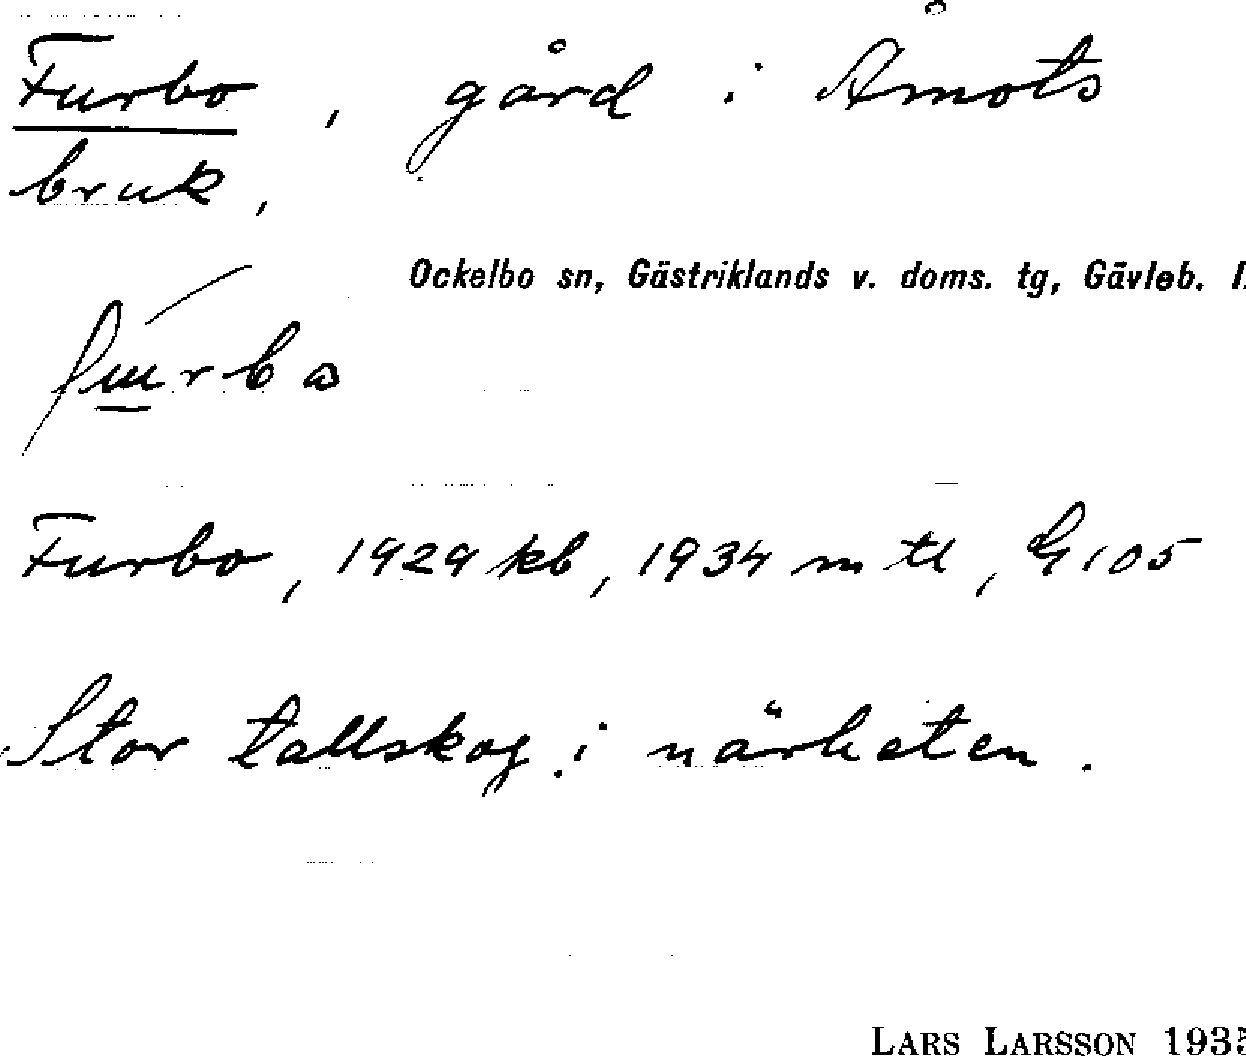 Furbo, gård i Åmots
bruk,
Ockelbo sn, Gästriklands v. doms. tg, Gävleb. l.
Furbo, 1929 kb, 1934 mtl, G105
Stor tallskog i närheten.
LARS LARSSON 193